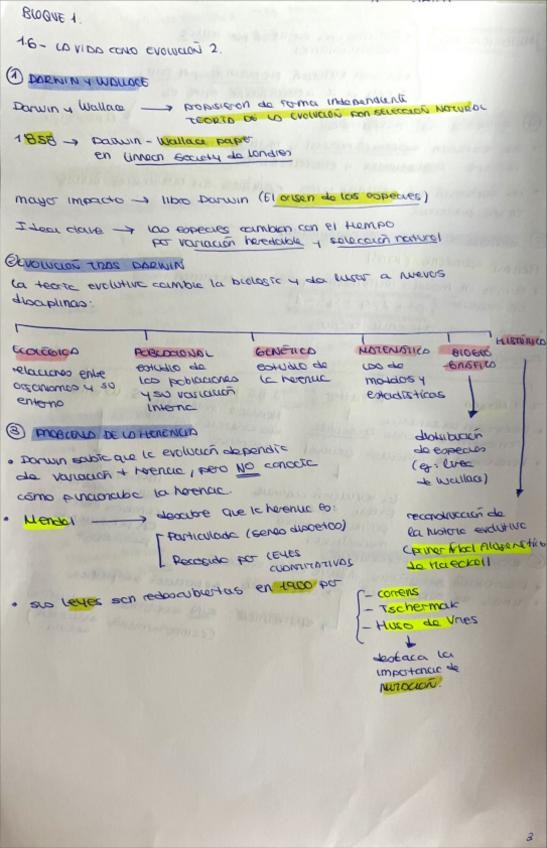 BLOQUE 1.
1.6- LA VIDA COMO EVOLUCIÓN 2.
① DARWIN Y WALLACE
Darwin y Wallace → propusieron de forma independiente
TEORÍA DE LA EVOLUCIÓN POR SELECCIÓN NATURAL
1858 → Darwin - Wallace paper
en Linnean Society de Londres
mayor impacto → libro Darwin (El origen de las especies)
Idea clave → las especies cambian con el tiempo
por variación heredable y selección natural
② EVOLUCIÓN TRAS DARWIN
La teoría evolutiva cambia la biología y da lugar a nuevas
disciplinas:
ECOLÓGICA
relaciones entre
organismos y su
entorno
POBLACIONAL
estudio de
las poblaciones
y su variación
interna
GENÉTICA
estudio de
la herencia
MATEMÁTICA
uso de
modelos y
estadísticas
BIOGEO
GRÁFICO
distribución
de especies
(ej: línea
de Wallace)
HISTÓRICO
reconstrucción de
la historia evolutiva
(primer árbol filogenético
de Haeckel)
③ PROBLEMA DE LA HERENCIA
• Darwin sabía que la evolución dependía
de variación + herencia, pero NO conocía
cómo funcionaba la herencia.
• Mendel → descubre que la herencia es:
Particulada (genes discretos)
Regida por LEYES
CUANTITATIVAS
• sus leyes son redescubiertas en 1900 por
- Correns
- Tschermak
- Hugo de Vries
destaca la
importancia de
MUTACIÓN.
2